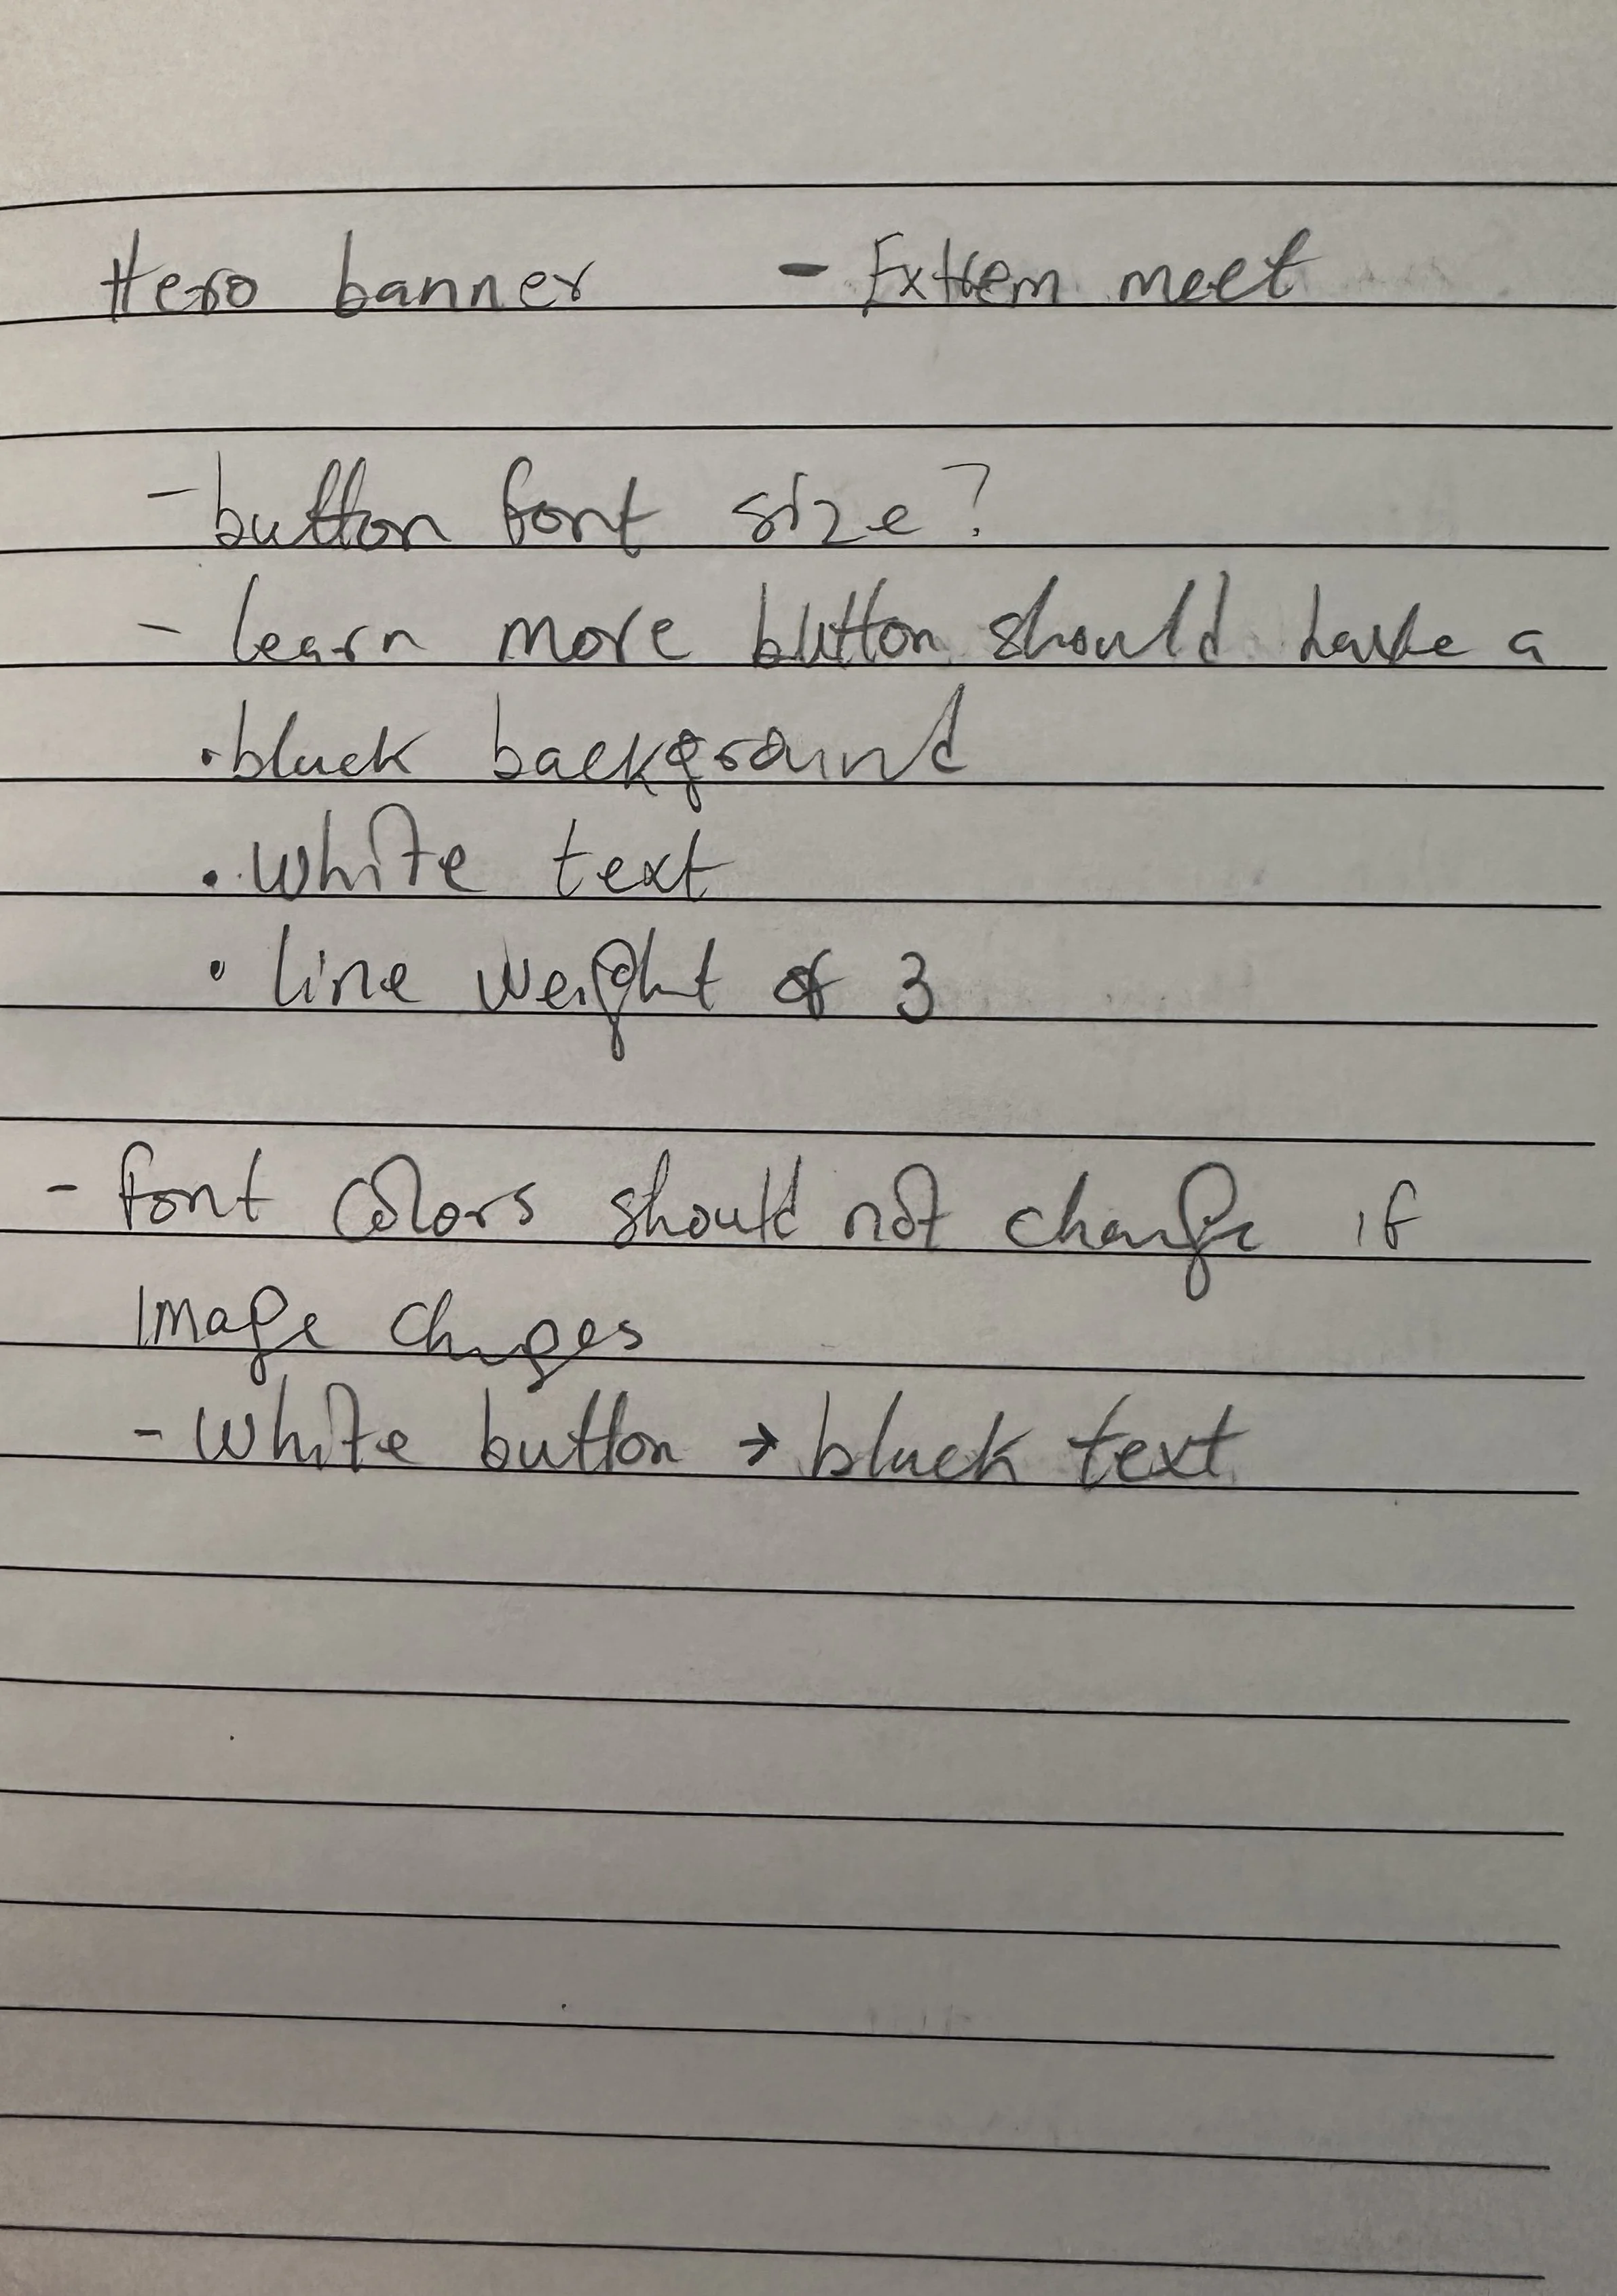 Hero banner - Extrem meet
- button font size?
- learn more button should have a
• black background
• white text
• line weight of 3
- font colors should not change if
image changes
- white button → black text